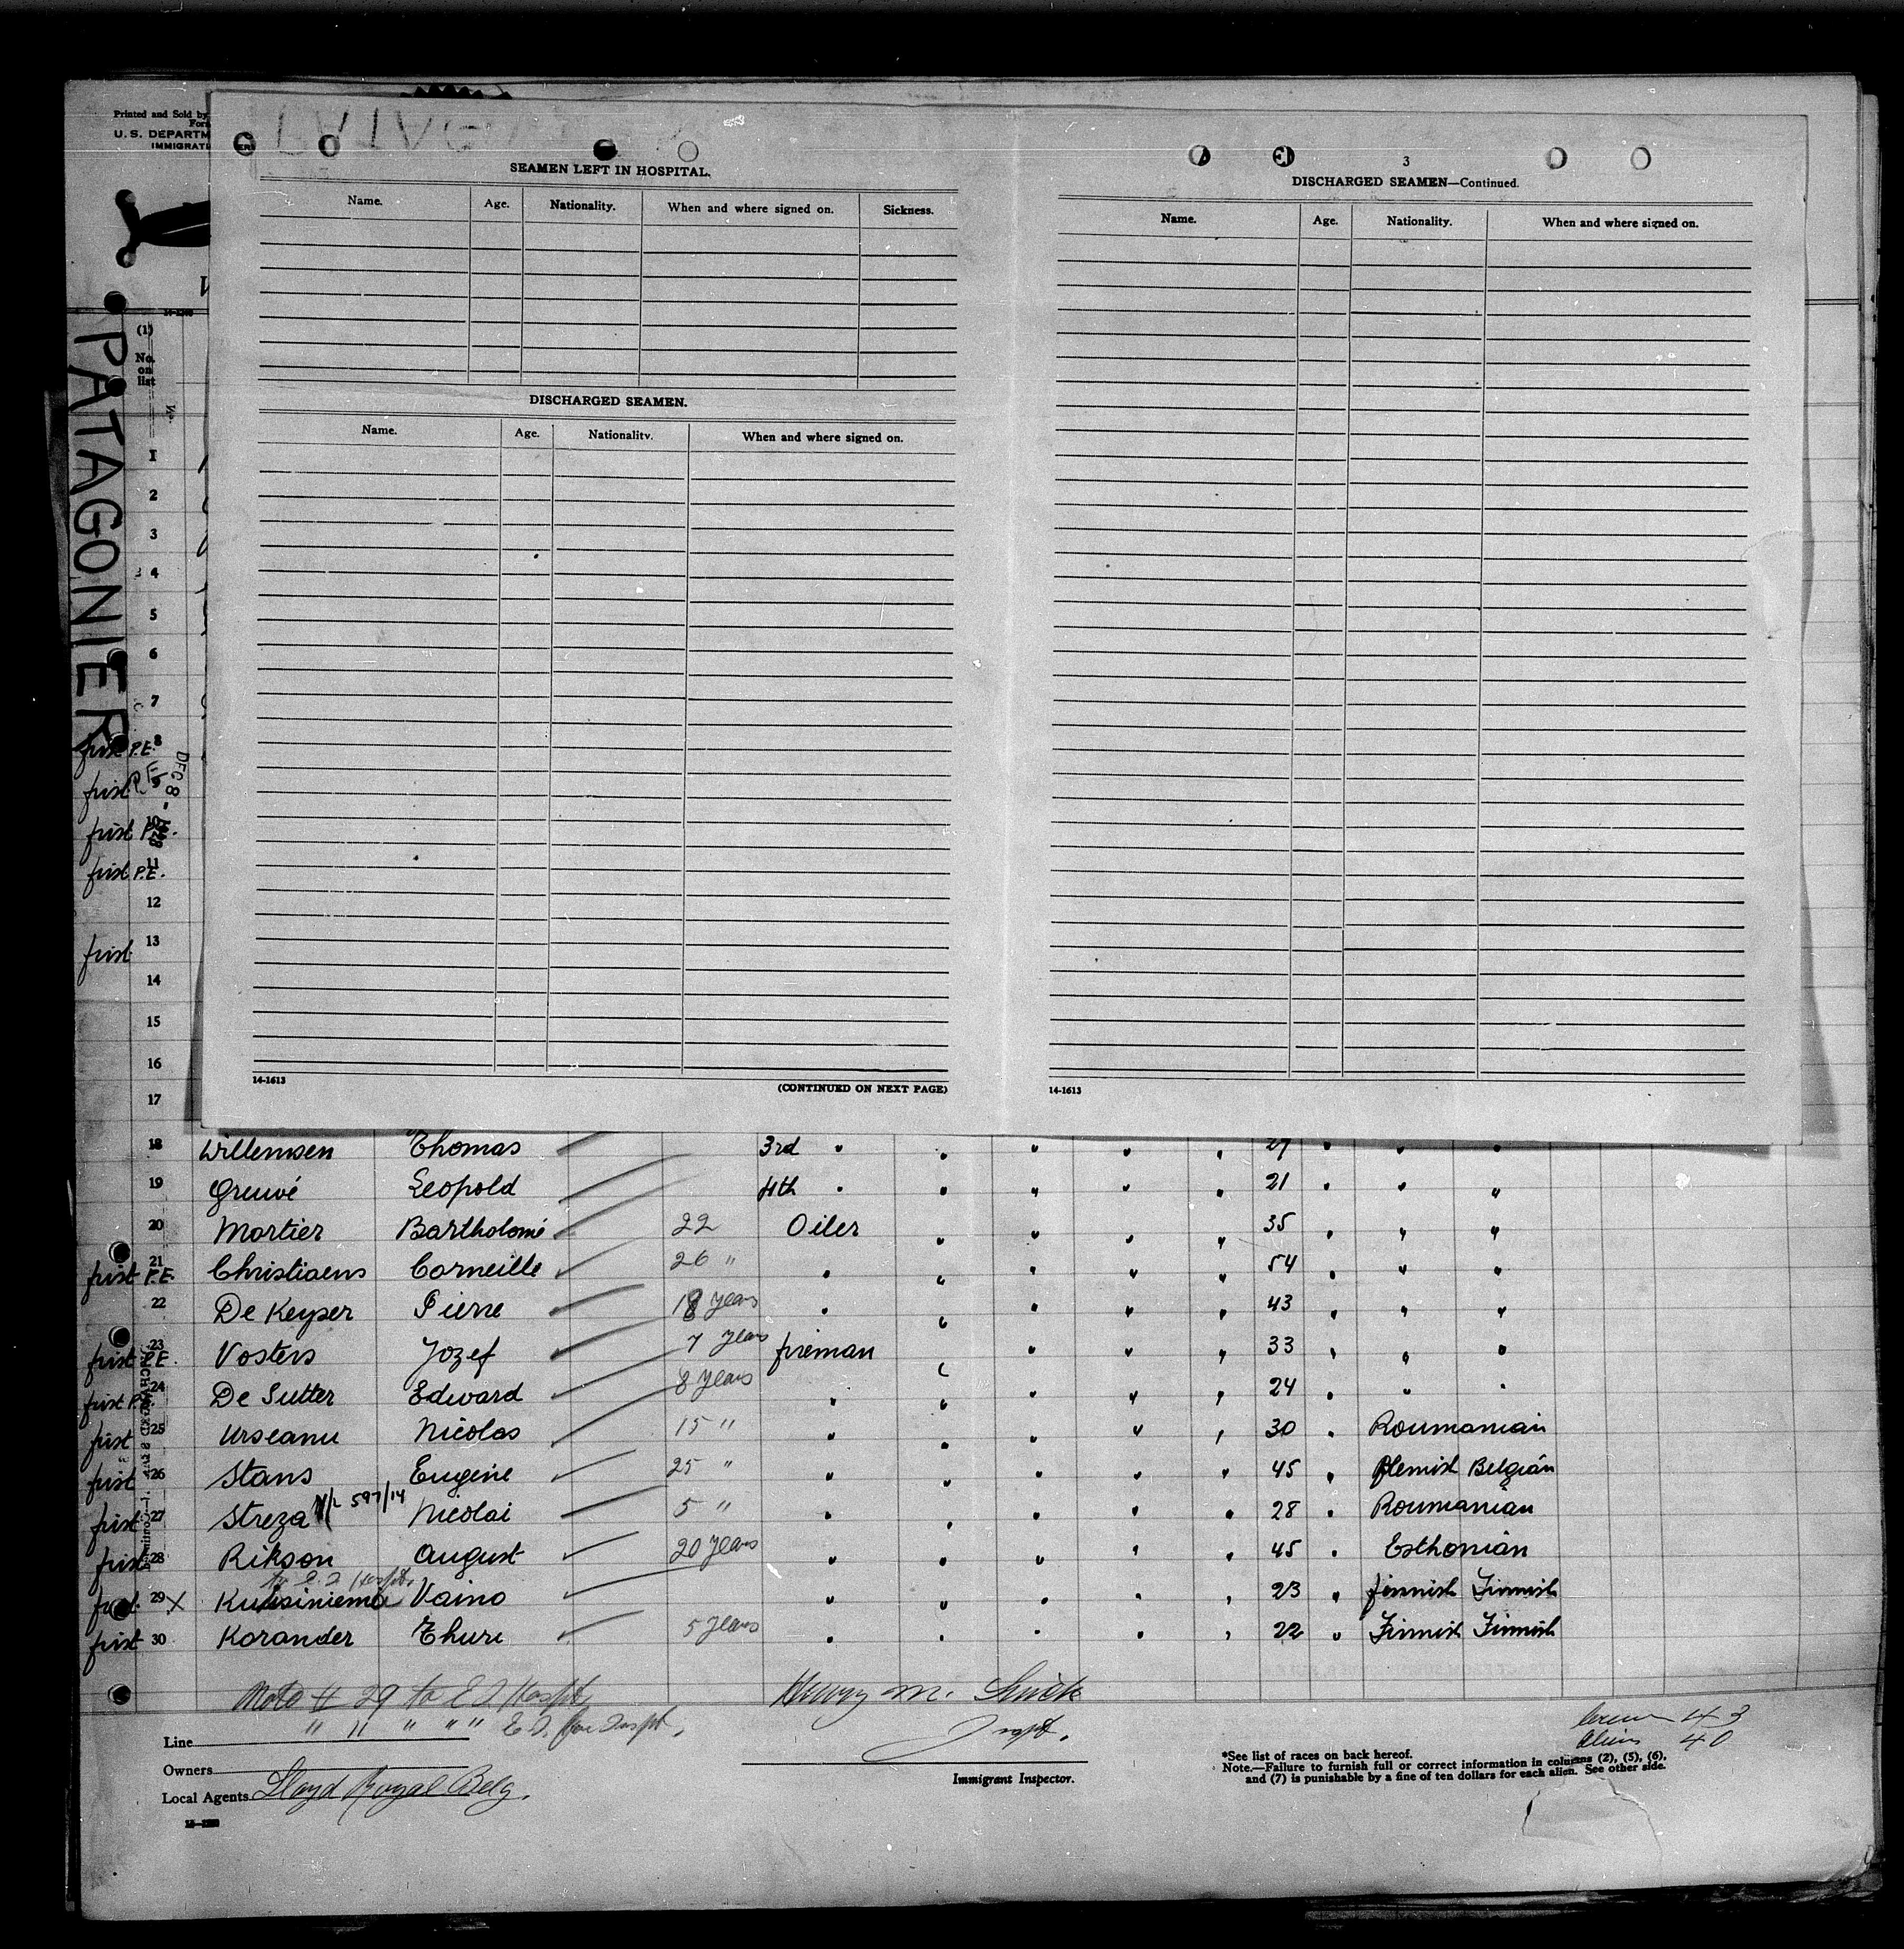 Printed and Sold by
U. S. DEPARTM
IMMIGRATI
PATAGONIER
(1)
No.
on
list
SEAMEN LEFT IN HOSPITAL.
Name. Age. Nationality. When and where signed on. Sickness.
DISCHARGED SEAMEN.
Name. Age. Nationality. When and where signed on.
14-1613 (CONTINUED ON NEXT PAGE)
3
DISCHARGED SEAMEN—Continued.
Name. Age. Nationality. When and where signed on.
14-1613
1
2
3
4
5
6
7
first P.E. 8
first P.E. 9
DEC 8 - 1923
first P.E.
first P.E. 11
12
first 13
14
15
16
17
18 Willemsen Thomas 3rd " " " " " 27 " " "
19 Greuvé Leopold 4th " " " " " 21 " " "
20 Mortier Bartholomé 22 Oiler " " " " 35 " " "
first P.E. 21 Christiaens Corneille 26 " " " " " " 54 " " "
22 De Keyser Pierre 18 years " " " " " 43 " " "
first P.E. 23 Vosters Jozef 7 years fireman " " " " 33 " " "
first P.E. 24 De Sutter Edward 8 years " " " " " 24 " " "
first 25 Urseanu Nicolas 15 " " " " " " 30 " Roumanian
first 26 Stans Eugene 25 " " " " " " 45 " Flemish Belgian
first 27 Streza 597/14 Nicolai 5 " " " " " " 28 " Roumanian
first 28 Rikson August 20 years " " " " " 45 " Esthonian
to E.I Hospt.
first 29 X Kuusiniema Vaino " " " " " 23 " Finnish Finnish
first 30 Korander Thure 5 years " " " " " 22 " Finnish Finnish
Note # 29 to E I Hospt
" " " " " E.I. for Inspt.
Henry M.
Inspt.
Immigrant Inspector.
crew 43
Aliens 40
Line
Owners
Local Agents Lloyd Royal Belg.
*See list of races on back hereof.
Note.—Failure to furnish full or correct information in columns (2), (5), (6),
and (7) is punishable by a fine of ten dollars for each alien. See other side.